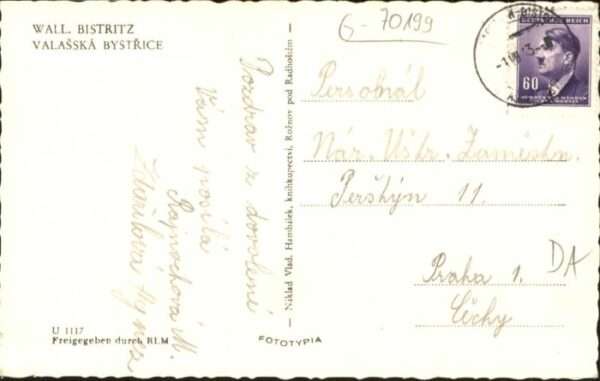 WALL. BISTRITZ
VALAŠSKÁ BYSTŘICE
G-70199
DEUTSCHES REICH
60
Pozdrav z dovolené
Vám posílá
Rajnochová M.
Personál
Nár. Úštr. Zaměstn.
Perštýn 11.
Praha 1.
Čechy
DA
Náklad Vlad. Hambálek, knihkupectví, Rožnov pod Radhoštěm
U 1117
Freigegeben durch RLM
FOTOTYPIA